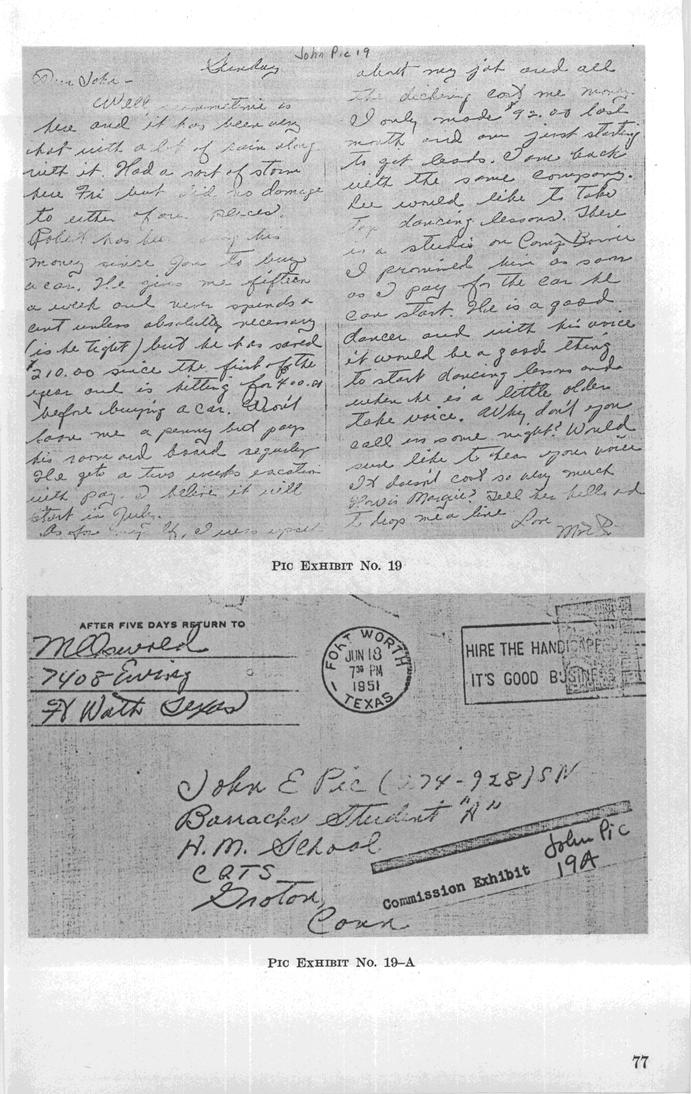 John Pic 19
Sunday
Dear John -
Well summertime is
here and it has been very
hot with a lot of rain along
with it. Had a sort of storm
here Fri but did no damage
to either of our places.
Robert has been his
money since Jan to buy
a car. He gives me fifteen
a week and never spends a
cent unless absolutely necessary
(is he tight) but he has saved
$210.00 since the first of the
year and is hitting for 400.00
before buying a car. Won't
loan me a penny but pays
his room and board regularly
He gets a two weeks vacation
with pay. I believe it will
start in July.
As for I was upset
about my job and all
the dickering cost me money
I only made $92.00 last
month and am just starting
to get leads. I am back
with the same company.
Lee would like to take
Tap dancing lessons. There
is a studio on Camp Bowie
I promised him as soon
as I pay for the car he
can start. He is a good
dancer and with his voice
it would be a good thing
to start dancing lessons and
when he is a little older
take voice. Why don't you
call in some night? Would
sure like to hear your voice
It doesn't cost so very much
How is Margie? Tell her hello and
to drop me a line Love
PIC EXHIBIT NO. 19
AFTER FIVE DAYS RETURN TO
M Oswald
7408 Ewing
Ft Worth Texas
FORT WORTH
JUN 18
7 30 PM
1951
TEXAS
HIRE THE HANDICAPPED
IT'S GOOD BUSINESS
John E Pic ( 74-928) SN
Barracks Student "A"
H.M. School
Groton,
Conn
Commission Exhibit
John Pic
19A
PIC EXHIBIT NO. 19–A
77